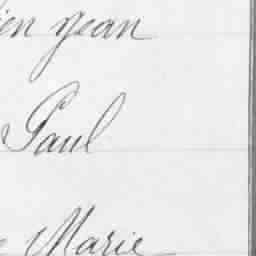 ien Jean
Paul
Marie